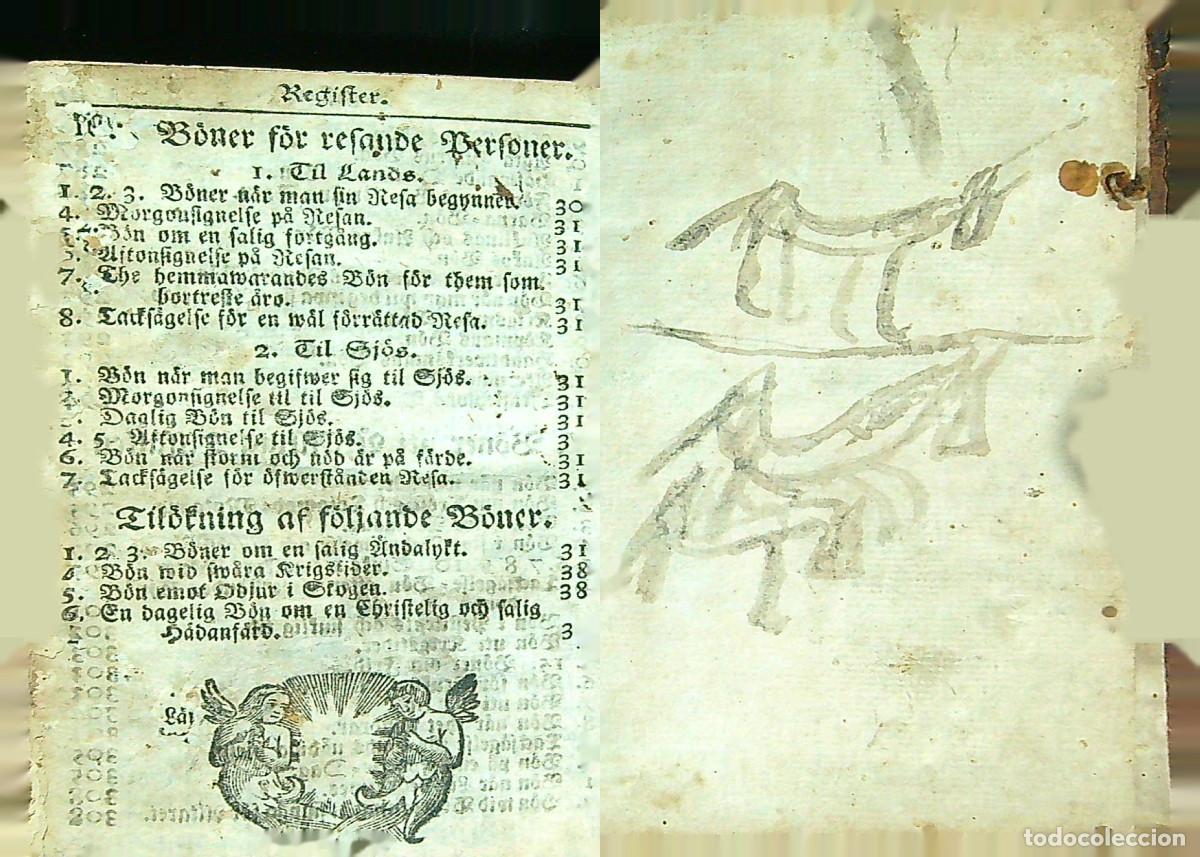 Register.
Böner för resande Personer.
1. Til Lands.
1. 2. 3. Böner när man sin Resa begynnen 30
4. Morgonsignelse på Resan. 31
Bön om en salig fortgång. 31
Aftonsignelse på Resan. 31
7. The hemmawarandes Bön för them som
bortreste äro. 31
8. Tacksägelse för en wäl förrättad Resa. 31
2. Til Sjös.
1. Bön när man begifwer sig til Sjös. 31
Morgonsignelse til til Sjös. 31
Daglig Bön til Sjös. 31
4. 5. Aftonsignelse til Sjös. 3
6. Bön när storm och nöd är på färde. 31
7. Tacksägelse för öfwerstånden Resa. 31
Tilökning af följande Böner.
1. 2 3. Böner om en salig Ändalykt. 31
Bön wid swåra Krigstider. 38
5. Bön emot Odjur i Skogen. 38
6. En dagelig Bön om en Christelig och salig
Hädanfärd. 3
todocoleccion